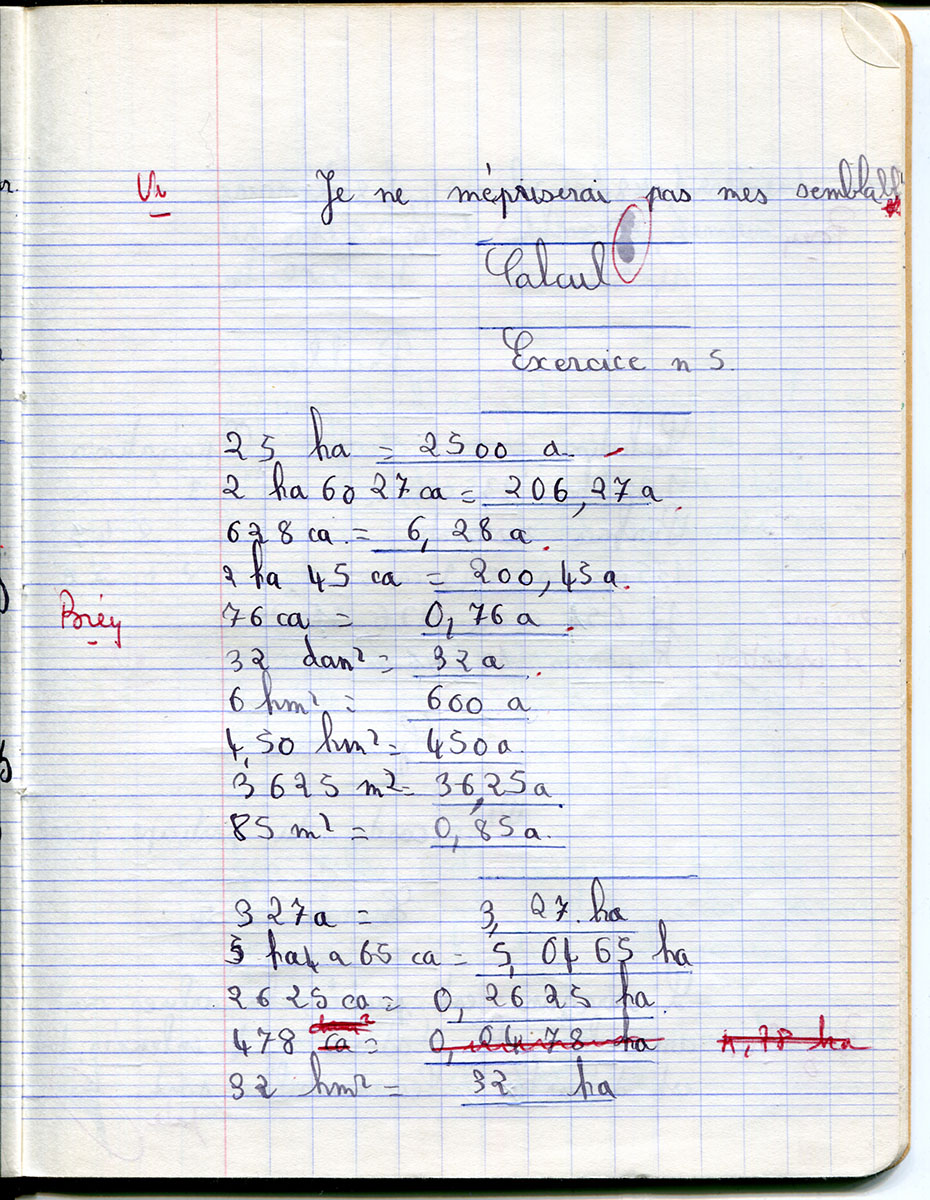 Je ne mépriserai pas mes semblabl
Calcul
Exercice n 5.
25 ha = 2500 a
2 ha 6a 27 ca = 206,27 a
628 ca = 6,28 a
2 ha 45 ca = 200,45 a
Bien
76 ca = 0,76 a
32 dam² = 32 a
6 hm² = 600 a
4,50 hm² = 450 a
3625 m² = 36,25 a
85 m² = 0,85 a
327a = 3,27 ha
5 ha 4 a 65 ca = 5,0465 ha
2625 ca = 0,2625 ha
dam²
478 ca = 0,0478 ha 4,78 ha
32 hm² = 32 ha